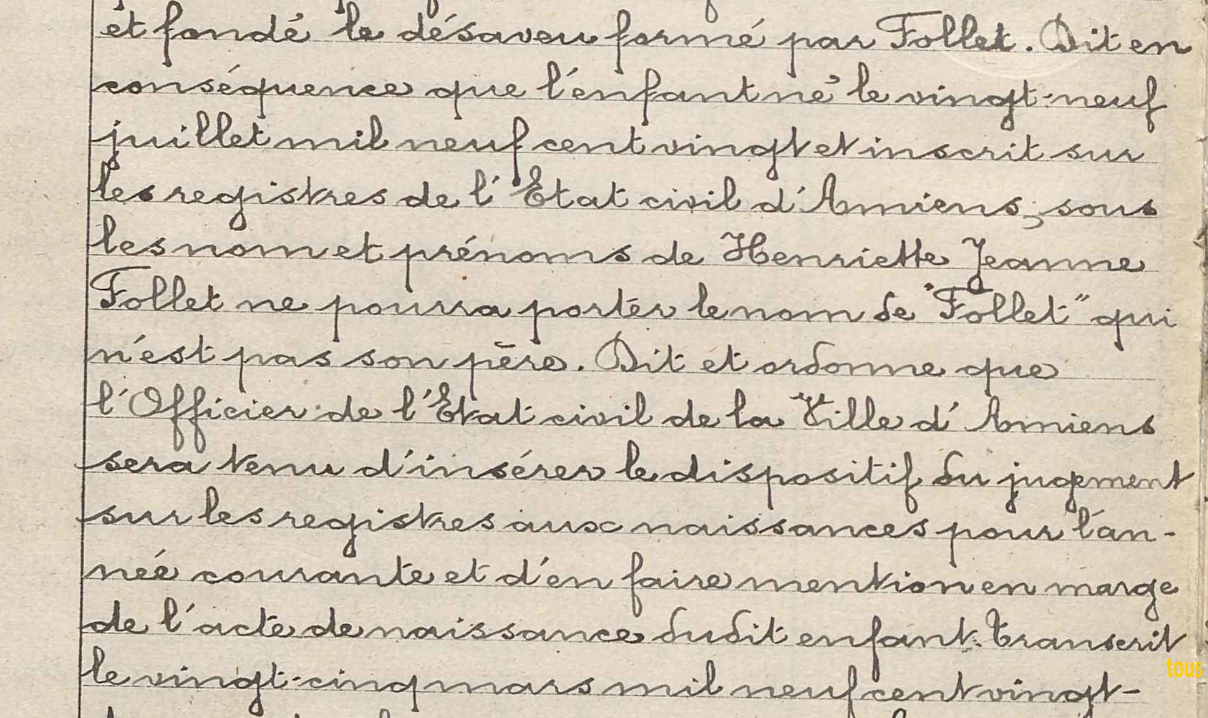 et fondé le désaveu formé par Follet. Dit en
conséquence que l'enfant né le vingt-neuf
juillet mil neuf cent vingt et inscrit sur
les registres de l'Etat civil d'Amiens, sous
les nom et prénoms de Henriette Jeanne
Follet ne pourra porter le nom de "Follet" qui
n'est pas son père. Dit et ordonne que
l'Officier de l'Etat civil de la Ville d'Amiens
sera tenu d'insérer le dispositif du jugement
sur les registres aux naissances pour l'an-
née courante et d'en faire mention en marge
de l'acte de naissance dudit enfant. Transcrit
tous
le vingt-cinq mars mil neuf cent vingt-